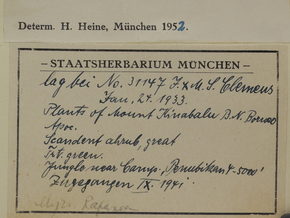 Determ. H. Heine, München 1952.
– STAATSHERBARIUM MÜNCHEN –
lag bei No. 31147 J. & M. S. Clemens
Jan. 24. 1933.
Plants of Mount Kinabalu B. N. Borneo
Apoc.
Scandent shrub, great
Frt. green.
Jungle near Camp, Penibukan 4-5000'
Zugegangen IX. 1941